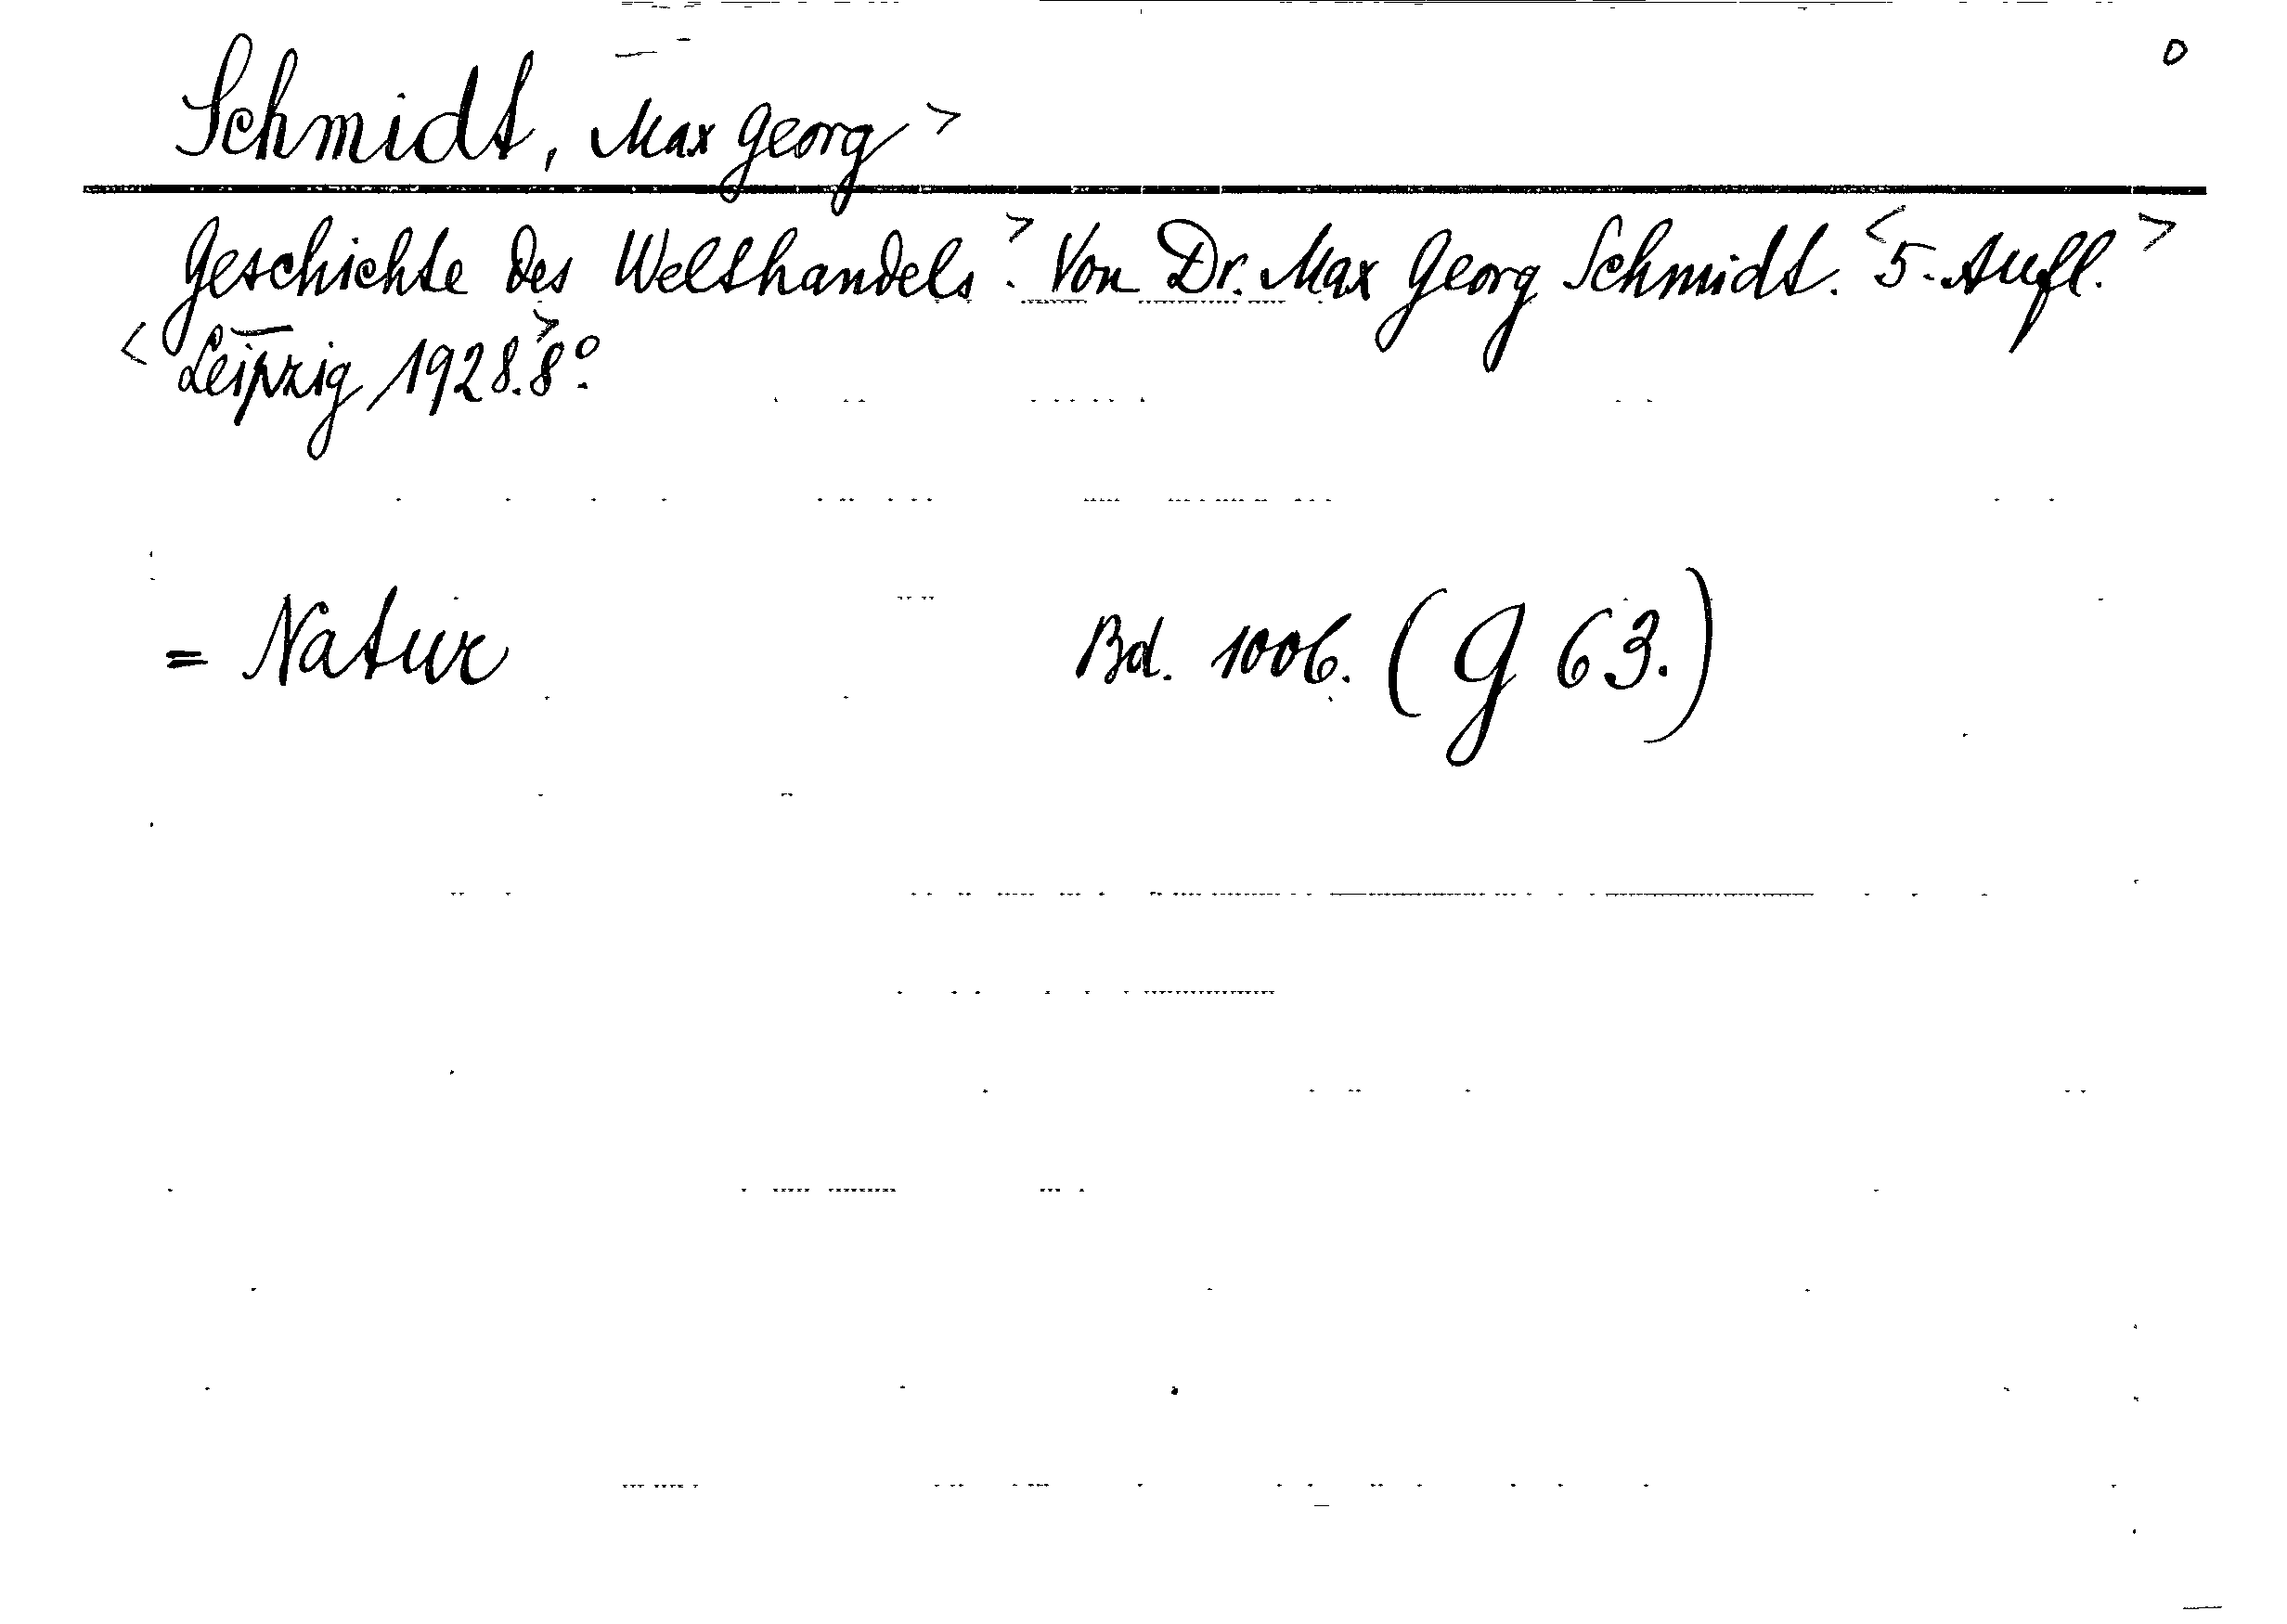 0
Schmidt, Max Georg >
Geschichte des Welthandels.> Von Dr. Max Georg Schmidt. <5. Aufl.>
<Leipzig 1928.> 8°.
= Natur Bd. 1006. (G 63.)